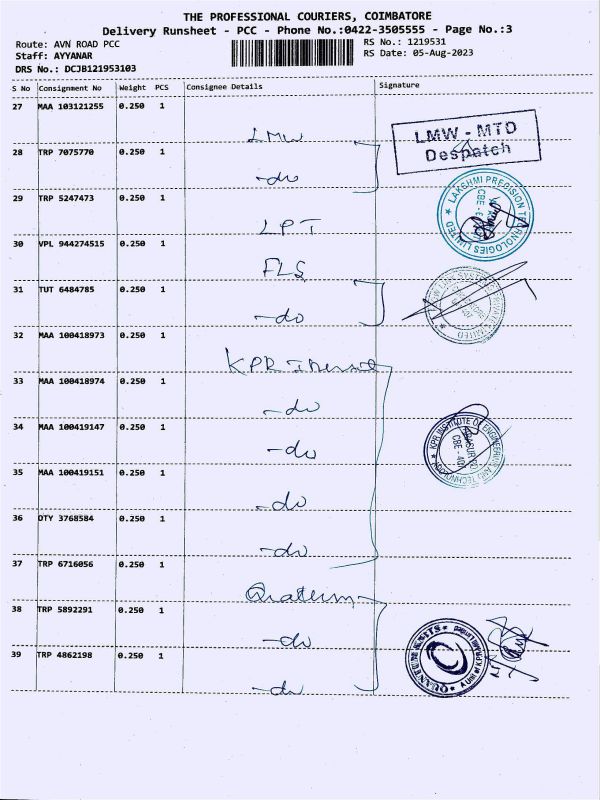 THE PROFESSIONAL COURIERS, COIMBATORE
Delivery Runsheet - PCC - Phone No.:0422-3505555 - Page No.:3
Route: AVN ROAD PCC RS No.: 1219531
Staff: AYYANAR RS Date: 05-Aug-2023
DRS No.: DCJB121953103
S No Consignment No Weight PCS Consignee Details Signature
27 MAA 103121255 0.250 1 LMW
LMW - MTD
Despatch
28 TRP 7075770 0.250 1 -do
29 TRP 5247473 0.250 1 LPT
LAKSHMI PRECISION TECHNOLOGIES LIMITED
30 VPL 944274515 0.250 1 FLS
31 TUT 6484785 0.250 1 -do
32 MAA 100418973 0.250 1 KPR
33 MAA 100418974 0.250 1 -do
34 MAA 100419147 0.250 1 -do
KPR INSTITUTE OF ENGINEERING AND TECHNOLOGY
35 MAA 100419151 0.250 1 -do
36 DTY 3768584 0.250 1 -do
37 TRP 6716056 0.250 1 Quatum
38 TRP 5892291 0.250 1 -do
39 TRP 4862198 0.250 1 -do